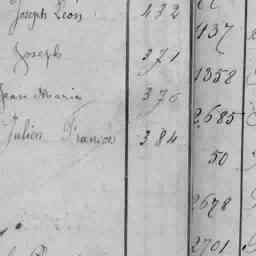 Joseph Léon 432
1137
Joseph 371
1358
Jean Marie 376
2685
Julien François 384
50
2678
2701